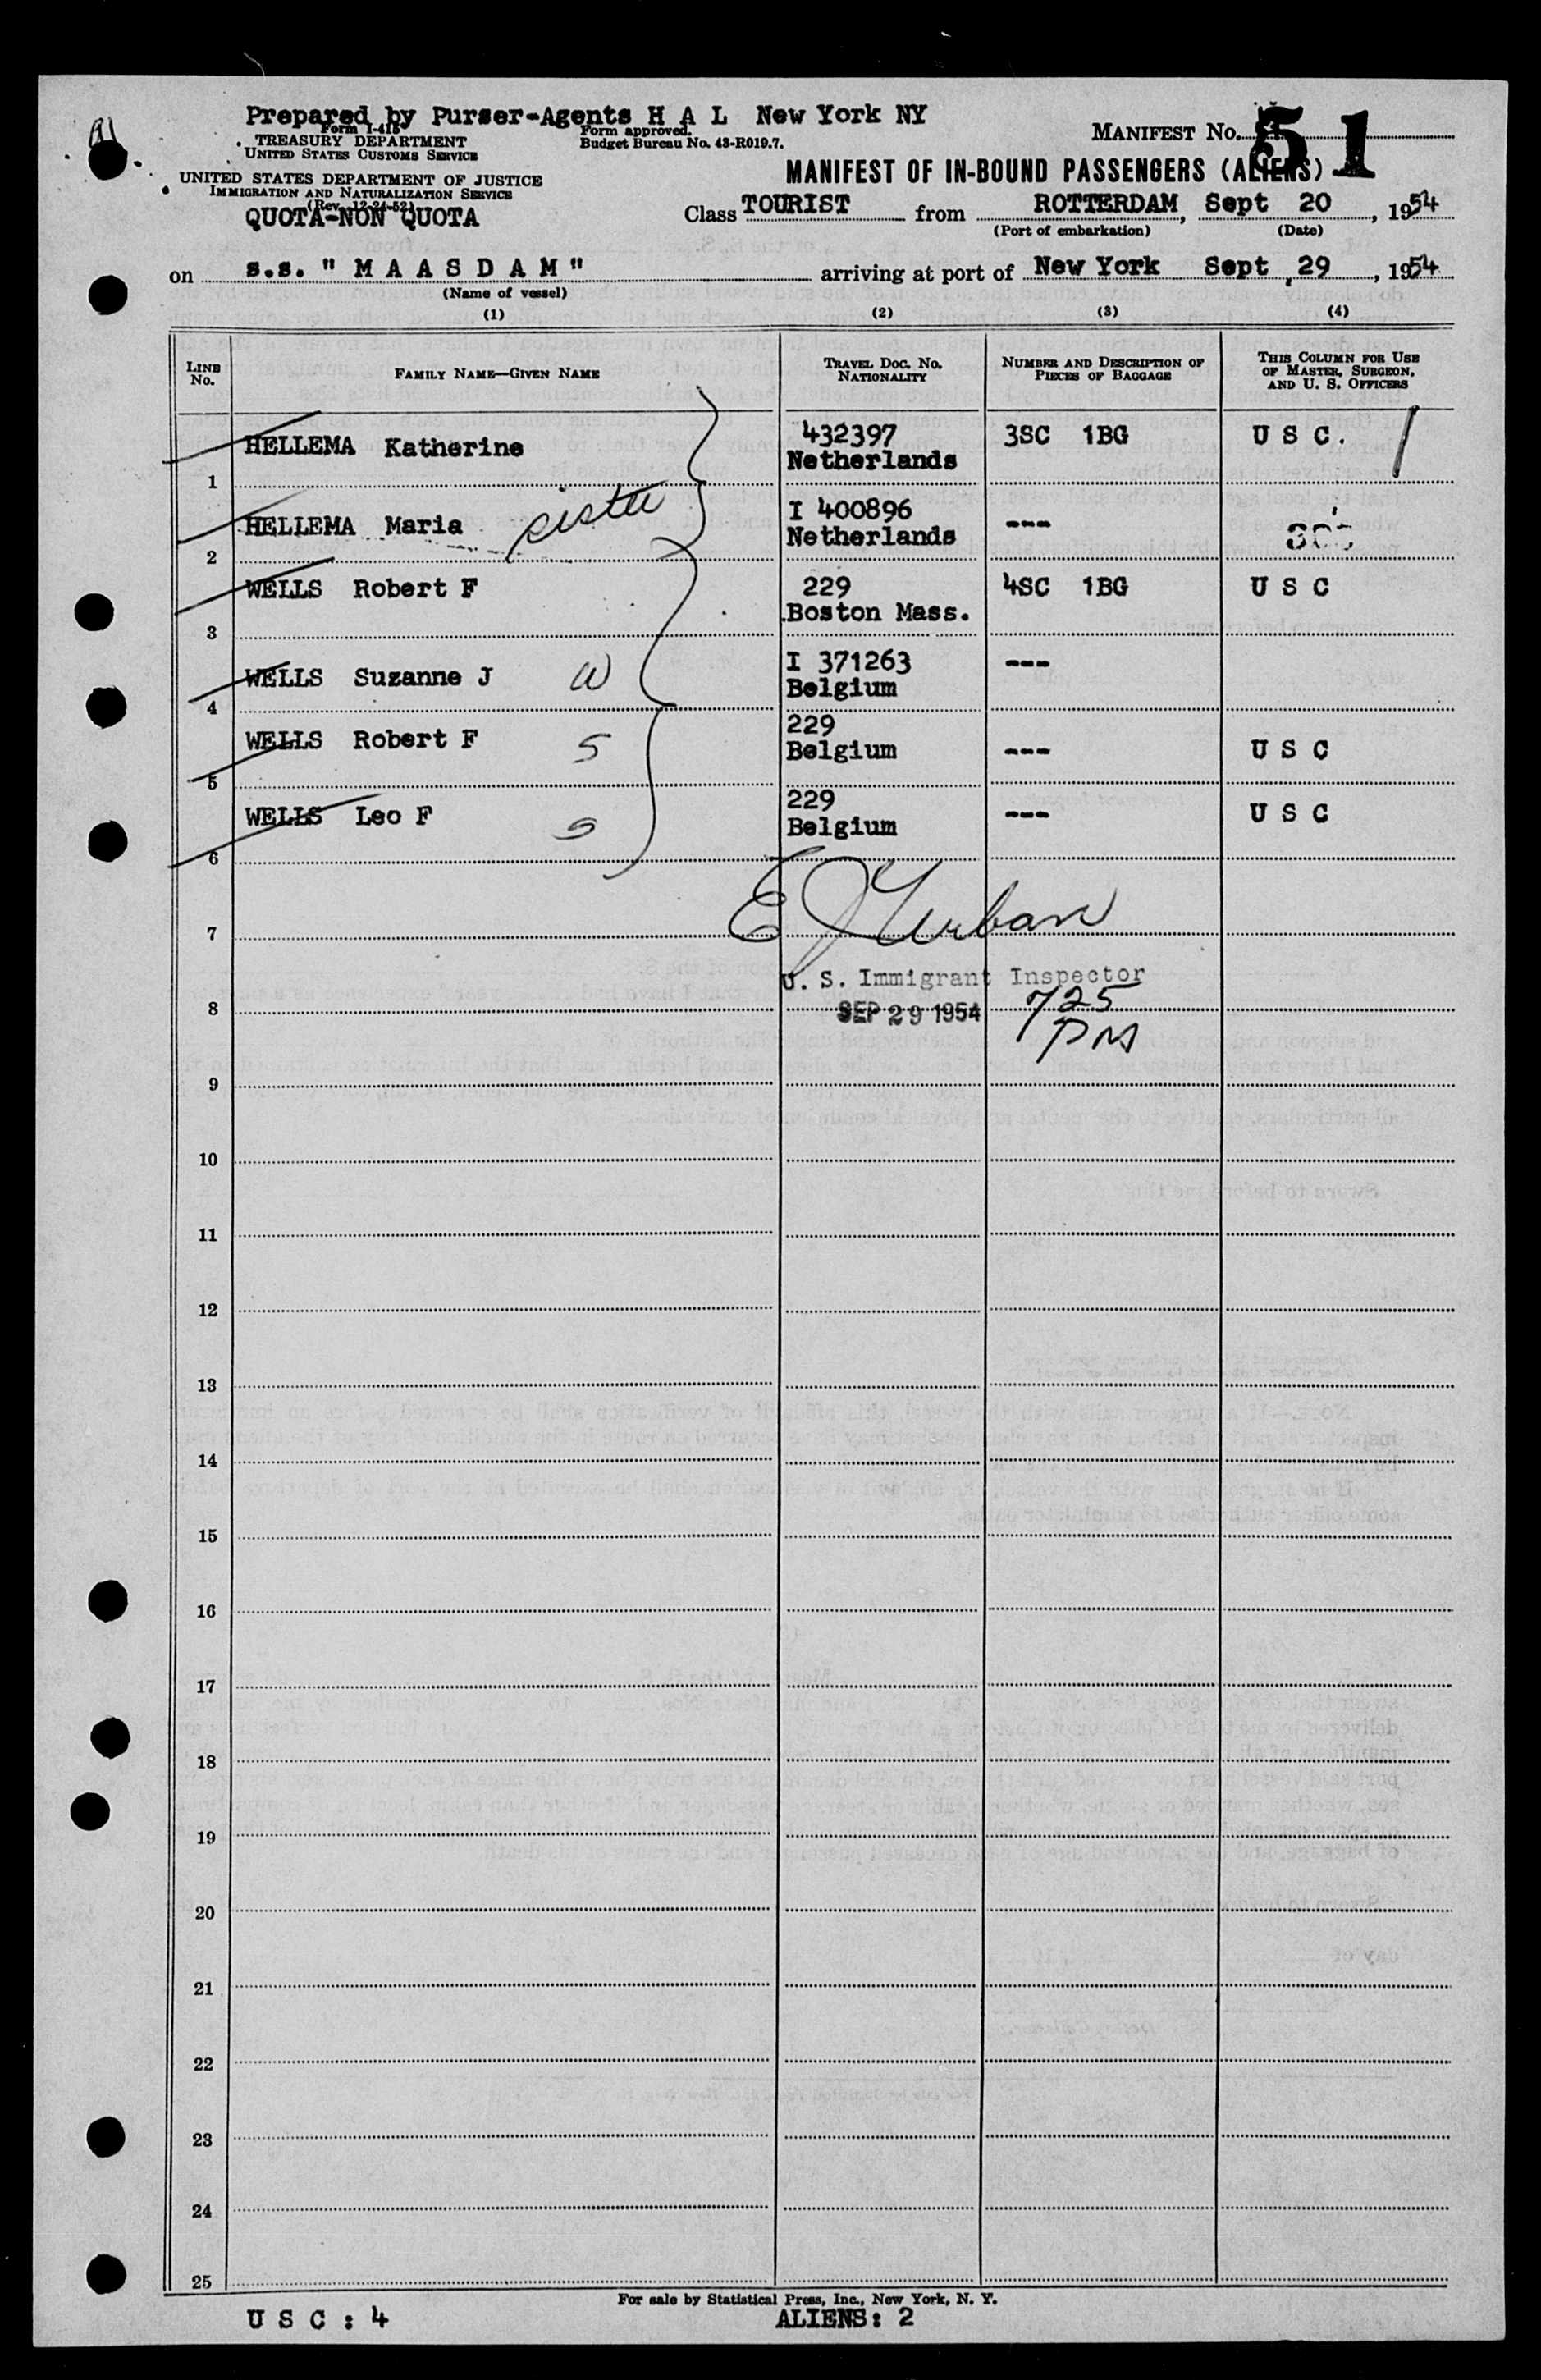 Prepared by Purser-Agents H A L New York NY
Form I-418
TREASURY DEPARTMENT
UNITED STATES CUSTOMS SERVICE
Form approved.
Budget Bureau No. 43-R019.7.
MANIFEST No. 51
UNITED STATES DEPARTMENT OF JUSTICE
IMMIGRATION AND NATURALIZATION SERVICE
(Rev. 12-24-52)
QUOTA-NON QUOTA
MANIFEST OF IN-BOUND PASSENGERS (ALIENS)
Class TOURIST from ROTTERDAM, Sept 20, 1954
(Port of embarkation) (Date)
on s.s. " M A A S D A M " arriving at port of New York Sept 29, 1954
(Name of vessel)
(1) (2) (3) (4)
LINE No. FAMILY NAME—GIVEN NAME TRAVEL DOC. NO. NATIONALITY NUMBER AND DESCRIPTION OF PIECES OF BAGGAGE THIS COLUMN FOR USE OF MASTER, SURGEON, AND U. S. OFFICERS
HELLEMA Katherine 432397 3SC 1BG U S C. /
1 Netherlands
HELLEMA Maria sister I 400896 ---
2 Netherlands
WELLS Robert F 229 4SC 1BG U S C
3 Boston Mass.
WELLS Suzanne J W I 371263 ---
4 Belgium
WELLS Robert F S 229
5 Belgium --- U S C
WELLS Leo F S 229 --- U S C
6 Belgium
E J Urban
7
U. S. Immigrant Inspector
8 SEP 29 1954 725 PM
9
10
11
12
13
14
15
16
17
18
19
20
21
22
23
24
25
For sale by Statistical Press, Inc., New York, N. Y.
U S C : 4 ALIENS: 2